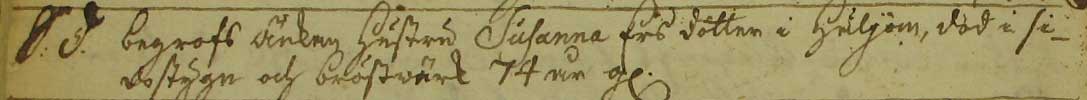 S. D. begrofs Änkan Hustru Susanna Ers dotter i Huljom, död i si-
dostygn och bröstvärk 74 år gl.